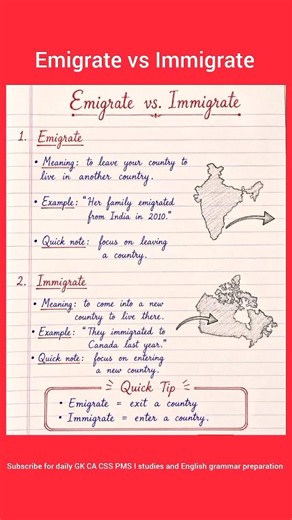 Emigrate vs Immigrate
Emigrate vs. Immigrate
1. Emigrate
• Meaning: to leave your country to
live in another country.
• Example: "Her family emigrated
from India in 2010."
• Quick note: focus on leaving
a country.
2. Immigrate
• Meaning: to come into a new
country to live there.
• Example: "They immigrated to
Canada last year."
• Quick note: focus on entering
a new country.
Quick Tip
• Emigrate = exit a country
• Immigrate = enter a country.
Subscribe for daily GK CA CSS PMS I studies and English grammar preparation